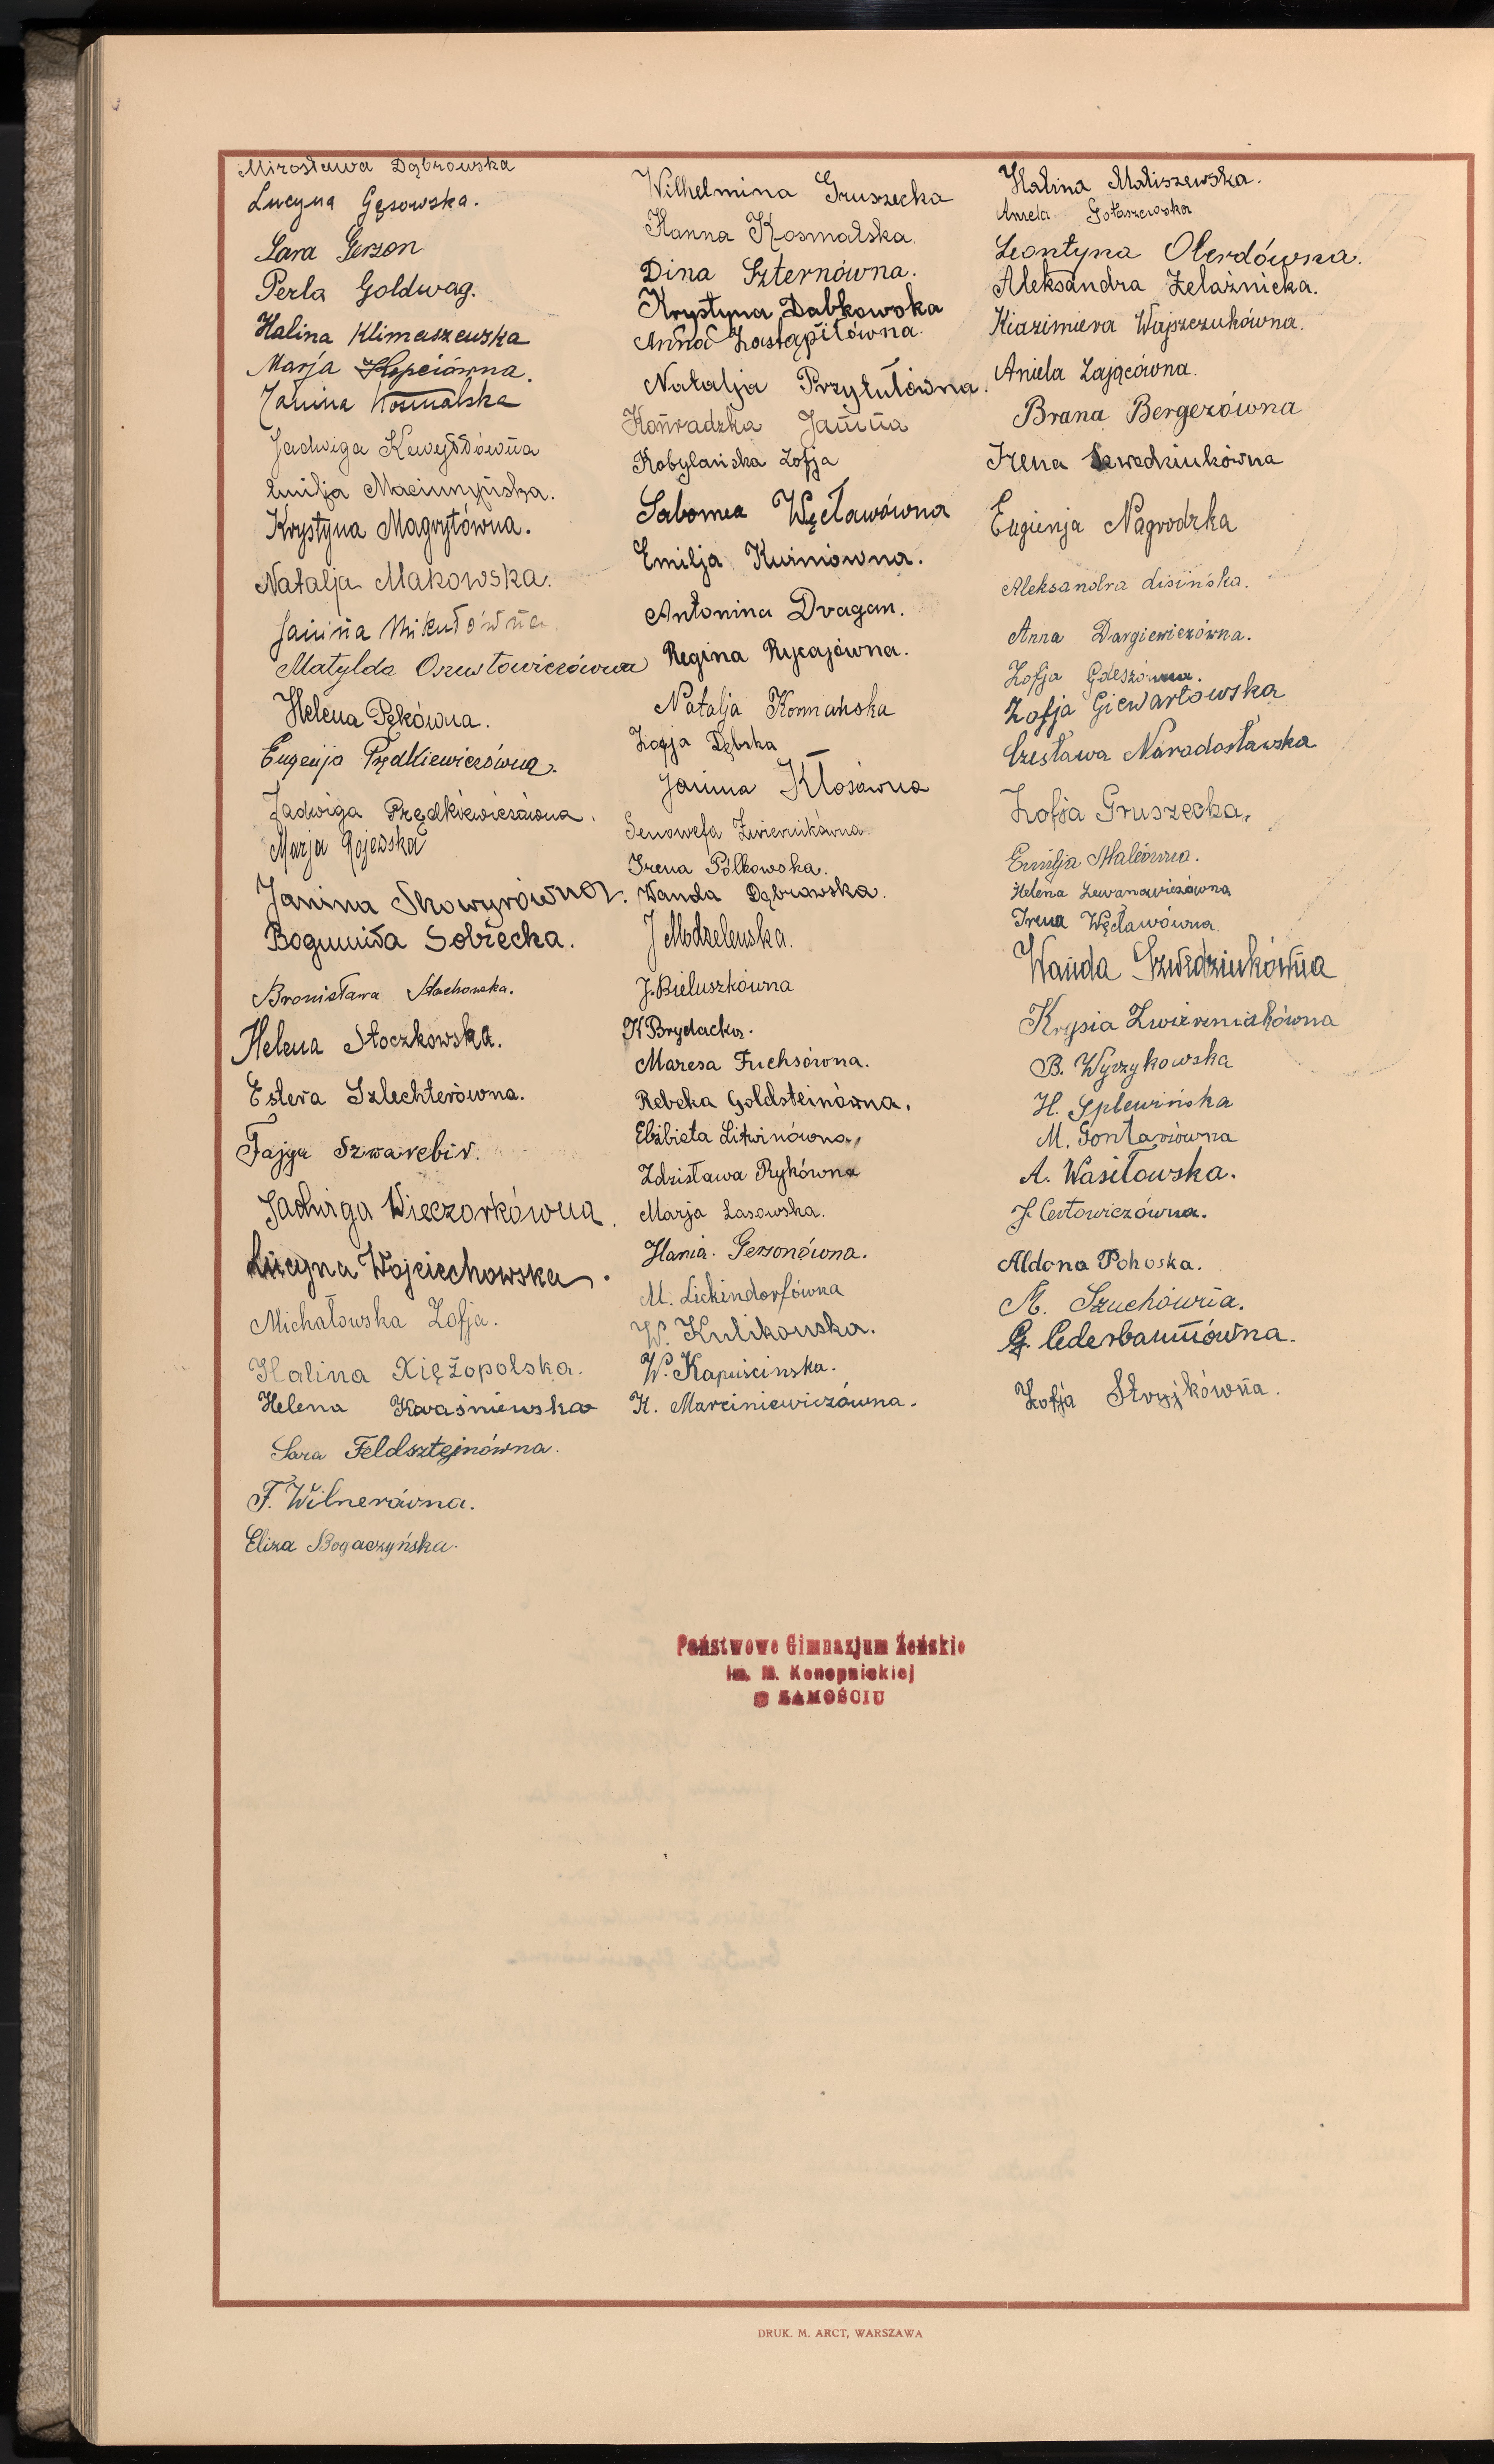 Mirosława Dąbrowska
Lucyna Gęsowska.
Sara Gerzon
Perla Goldwag.
Halina Klimaszewska
Marja Kopciówna.
Janina Kosmalska
Jadwiga
Emilja Maciumyńska.
Krystyna Magrytówna.
Natalja Makowska.
Janina Mikułówna.
Matylda Osustowiczówna
Helena Pękówna.
Eugenja Prędkiewiczówna.
Jadwiga Prędkiewiczówna.
Marja Rojewska
Janina Skowyrówna.
Bogumiła Sobiecka.
Bronisława Stachowska.
Helena Stoczkowska.
Estera Szlechterówna.
Fajga Szwarcbir.
Jadwiga Wieczorkówna.
Lucyna Wojciechowska.
Michałowska Zofja.
Halina Księżopolska.
Helena Kwaśniewska
Sara Feldsztejnówna.
F. Wilnerówna.
Eliza Bogaczyńska.
Wilhelmina Gruszecka
Hanna Kosmalska.
Dina Szternówna.
Krystyna Dabkowska
Anna Zastąpiłówna.
Natalja Przytułówna.
Konradzka Janina
Kobylańska Zofja
Salomea Węcławówna
Emilja Kuśniówna.
Antonina Dragan.
Regina Rycajówna.
Natalja Kormańska
Zofja Dębska
Janina Kłosówna
Genowefa Zwiernikówna.
Irena Półkowska.
Wanda Dąbrowska.
J Modzelewska.
J. Bieluszkówna
K Brydacka.
Maresa Fuchsówna.
Rebeka Goldsteinówna.
Elżbieta Litwinówna,
Zdzisława Rykówna
Marja Lasowska.
Hania. Gerzonówna.
M. Lickindorfówna
W. Kulikowska.
W. Kapuścinska.
K. Marciniewiczówna.
Halina Maliszewska.
Aniela Gołaszewska
Leontyna Oberdówna.
Aleksandra Żelaźnicka.
Kiazimiera Wajszczukówna.
Aniela Zającówna.
Brana Bergerówna
Irena Szwedziukówna
Eugienja Nagrodzka
Aleksandra Lisińska.
Anna Dargiewiczówna.
Zofja Gdeszówna.
Zofja Giewartowska
Czesława Naradosławska
Zofja Gruszecka.
Emilja Malcówna.
Helena Lewanowiczówna
Irena Węcławówna
Wanda Szwedziukówna
Krysia Zwierzniakówna
B. Wyrzykowska
H. Splewińska
M. Gontarówna
A. Wasiłowska.
J. Certowiczówna.
Aldona Pohoska.
M. Szuchówna.
G. Cederbaumówna.
Zofja Stryjkówna.
Państwowe Gimnazjum Żeńskie
im. M. Konopnickiej
w ZAMOŚCIU
DRUK. M. ARCT, WARSZAWA